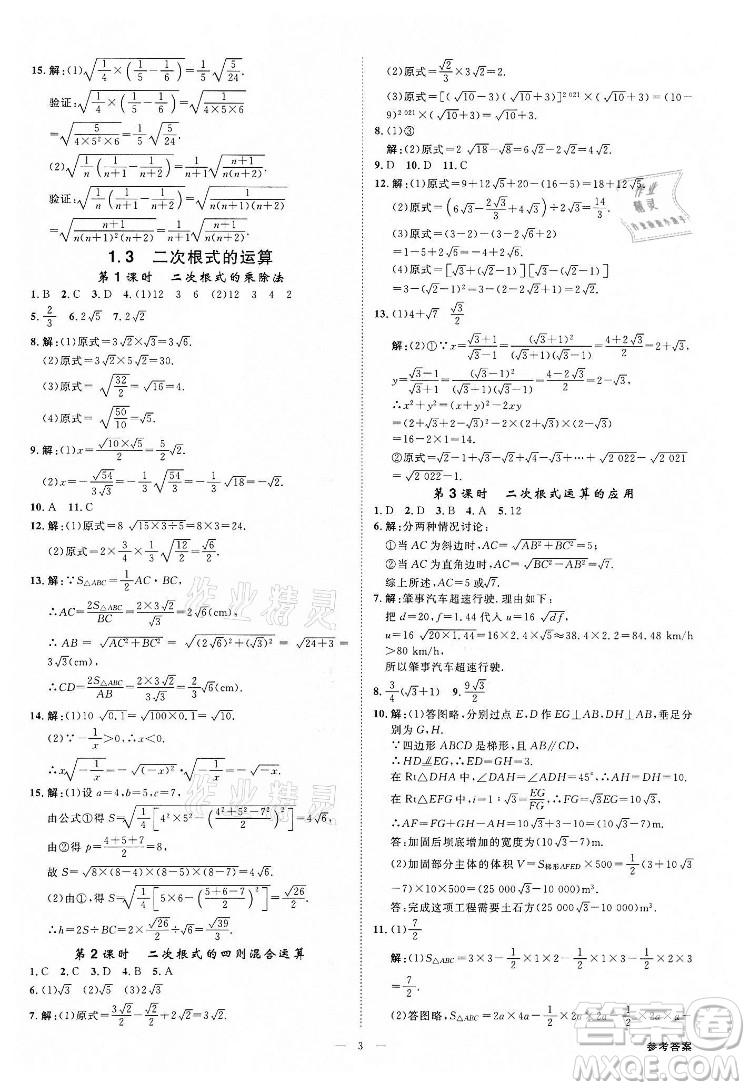 15. 解:(1)√(1/4×(1/5−1/6))=1/5√(5/24).
验证:√(1/4×(1/5−1/6))=√(1/(4×5×6))
=√(5/(4×5²×6))=1/5√(5/24).
(2)√(1/n(1/(n+1)−1/(n+2)))=1/(n+1)√((n+1)/(n(n+2))).
验证:√(1/n(1/(n+1)−1/(n+2)))=√(1/(n(n+1)(n+2)))
=√((n+1)/(n(n+1)²(n+2)))=1/(n+1)√((n+1)/(n(n+2))).
1.3 二次根式的运算
第1课时 二次根式的乘除法
1. B 2. C 3. D 4. (1)2 1 3 (2)12 3 4 2
5. 2/3 6. 2√5 7. 2√2
8. 解:(1)原式=3√2×√3=3√6.
(2)原式=3√5×2√5=30.
(3)原式=√(32/2)=√16=4.
(4)原式=√(50/10)=√5.
9. 解:(1)x=√10×√5/2=5/2√2.
(2)x=−√54/(3√3)=−1/3√(54/3)=−1/3√18=−√2.
10. A 11. C
12. 解:(1)原式=8√(15×3÷5)=8√9=24.
(2)原式=
13. 解:∵S△ABC=1/2AC·BC,
∴AC=2S△ABC/BC=2×3√2/√3=2√6(cm)
∴AB=√(AC²+BC²)=√((2√6)²+(√3)²)=√(24+3)=
3√3(cm)
∴CD=2S△ABC/AB=2×3√2/(3√3)=2/3√6(cm)
14. 解:(1)10√0.1=√(100×0.1)=√10.
(2)∵−1/x>0,∴x<0.
15. 解:(1)设a=4,b=5,c=7.
由公式①得S=√(1/4[4²×5²−((4²+5²−7²)/2)²])=4√6.
由公式②得p=(4+5+7)/2=8.
故S=√(8×(8−4)×(8−5)×(8−7))=4√6.
(2)由①得S=√(1/4[5×6−((5+6−7)/2)²])=√26/2.
∴h=2S÷BC=2×√26/2÷√6=√39/3.
第2课时 二次根式的四则混合运算
1. C 2. D 3. C 4. B 5. A
6. (1)√3 (2)√5 (3)√3
7. 解:(1)原式=3√2/2−√2/2+2√3=√2+2√3.
(2)原式=√2/3×3√2=2.
(3)原式=[(√10−3)(√10+3)]^2 021=1^2 021=1.
8. (1)③
解:(2)原式=2√18−√8=6√2−2√2=4√2.
9. D 10. D 11. C
12. 解:(1)原式=9+12√5+20−(16−5)=18+12√5.
(2)原式=(6√3−2√3/3+4√3)÷2√3=14/3.
(3)原式=1−6√2+18+2−4+2√2−2√2
=−1+18−6√2=17−6√2.
13. (1)4+√7 √3/2
解:(2)①∵x=(√3+1)/(√3−1)=(√3+1)²/((√3−1)(√3+1))=(4+2√3)/2=2+√3,
y=(√3−1)/(√3+1)=(√3−1)²/((√3+1)(√3−1))=(4−2√3)/2=2−√3,
∴x²+y²=(x+y)²−2xy
=16−2×1=14.
②原式=√2−1+√3−√2+…+√2 022−√2 021
=√2 022−1.
第3课时 二次根式运算的应用
1. D 2. D 3. B 4. A 5. 12
6. 解:分两种情况讨论:
①当AC为斜边时,AC=√(AB²+BC²)=5;
②当AC为直角边时,AC=√(BC²−AB²)=√7.
综上所述,AC=5或√7.
7. 解:肇事汽车超速行驶. 理由如下:
把d=20,f=1.44代入u=16√df,
u=16√(20×1.44)=16×2.4×√5≈85.87(km/h)
>80km/h,
所以肇事汽车超速行驶.
8. 3/4(√3+1) 9. 9√3/2
10. 解:(1)答图略,分别过点E,D作EG⊥AB,DH⊥AB,垂足分
别为G,H.
∵四边形ABCD是梯形,且AB∥CD,
∴AF=FG+GH−AH=10√3+3−10=(10√3−7)m.
答:加固后坝底增加的宽度为(10√3−7)m.
(2)加固部分主体的体积V=S梯形AFED×500=1/2(3+10√3
−7)×10×500=(25 000√3−10 000)m³.
答:完成这项工程需要土石方(25 000√3−10 000)m³.
11. (1)7/2
解:(1)S△ABC=3×3−1/2×1×2−1/2×2×3−1/2×1×3=7/2.
— 3 —
参考答案